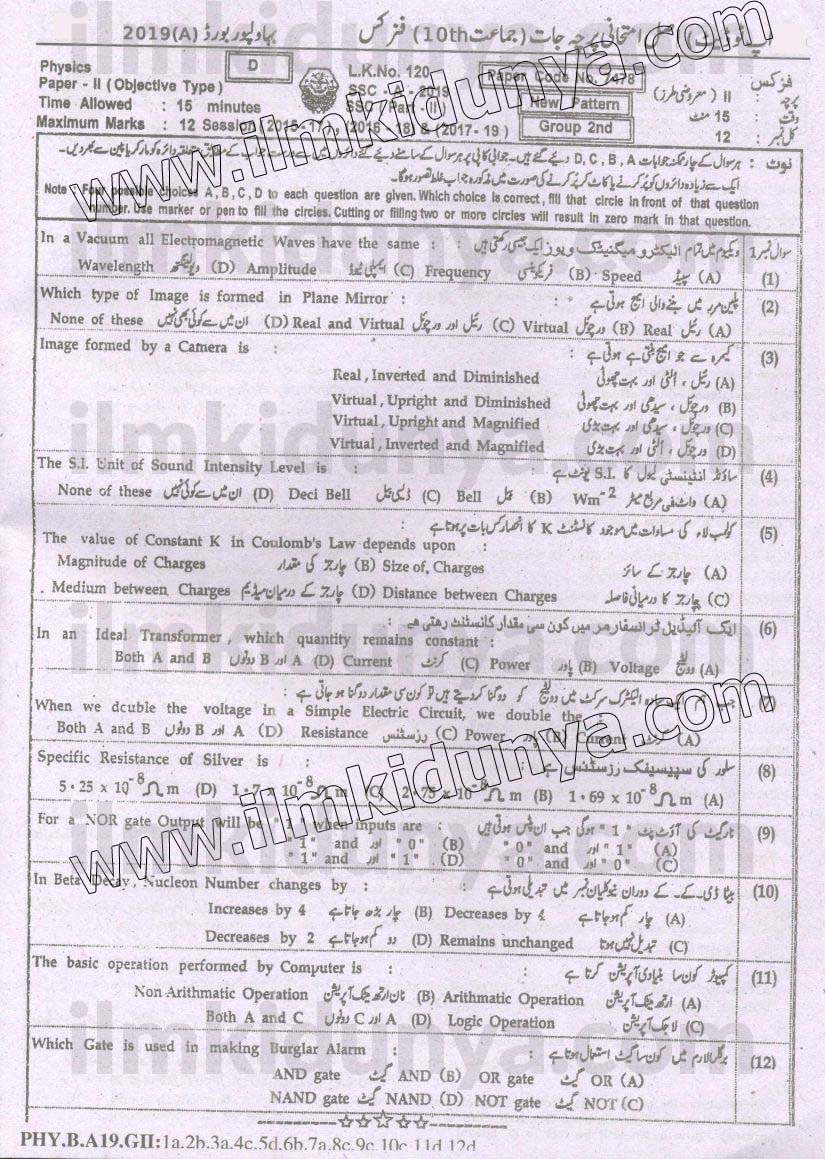 بہاولپور بورڈ 2019(A) امتحانی پرچہ جات (جماعت 10th) فزکس
Physics D L.K.No. 120 Paper Code No. 7478 فزکس
Paper - II (Objective Type) SSC - A - 2019 پرچہ : II (معروضی طرز)
Time Allowed : 15 minutes SSC (Part - II) New Pattern وقت : 15 منٹ
Maximum Marks : 12 Session (2015 - 17), (2016 - 18) & (2017 - 19) Group 2nd کل نمبر : 12
نوٹ : ہر سوال کے چار ممکنہ جوابات D, C, B, A دیئے گئے ہیں۔ جوابی کاپی پر ہر سوال کے سامنے دیئے گئے دائروں میں سے درست جواب کے مطابق متعلقہ دائرہ کو مارکر یا پین سے بھر دیں۔
ایک سے زیادہ دائروں کو پُر کرنے یا کاٹ کر پُر کرنے کی صورت میں مذکورہ جواب غلط تصور ہوگا۔
Note : Four possible choices A, B, C, D to each question are given. Which choice is correct, fill that circle in front of that question
number. Use marker or pen to fill the circles. Cutting or filling two or more circles will result in zero mark in that question.
In a Vacuum all Electromagnetic Waves have the same : ویکیوم میں تمام الیکٹرو میگنیٹک ویوز ایک جیسی رکھتی ہیں : سوال نمبر 1
Wavelength ویولینگتھ (D) Amplitude ایمپلی ٹیوڈ (C) Frequency فریکوئنسی (B) Speed سپیڈ (A) (1)
Which type of Image is formed in Plane Mirror : پلین مرر میں بننے والی امیج ہوتی ہے : (2)
None of these ان میں سے کوئی بھی نہیں (D) Real and Virtual رئیل اور ورچوئل (C) Virtual ورچوئل (B) Real رئیل (A)
Image formed by a Camera is : کیمرہ سے جو امیج بنتی ہے ہوتی ہے : (3)
Real, Inverted and Diminished رئیل ، الٹی اور بہت چھوٹی (A)
Virtual, Upright and Diminished ورچوئل ، سیدھی اور بہت چھوٹی (B)
Virtual, Upright and Magnified ورچوئل ، سیدھی اور بہت بڑی (C)
Virtual, Inverted and Magnified ورچوئل ، الٹی اور بہت بڑی (D)
The S.I. Unit of Sound Intensity Level is : ساؤنڈ انٹینسٹی لیول کا S.I. یونٹ ہے (4)
None of these ان میں سے کوئی نہیں (D) Deci Bell ڈیسی بیل (C) Bell بیل (B) Wm⁻² واٹ فی مربع میٹر (A)
کولمب لاء کی مساوات میں موجود کانسٹنٹ K کا انحصار کس بات پر ہوتا ہے (5)
The value of Constant K in Coulomb's Law depends upon :
Magnitude of Charges چارجز کی مقدار (B) Size of Charges چارجز کے سائز (A)
Medium between Charges چارجز کے درمیان میڈیم (D) Distance between Charges چارجز کا درمیانی فاصلہ (C)
ایک آئیڈیل ٹرانسفارمر میں کون سی مقدار کانسٹنٹ رھتی ھے : (6)
In an Ideal Transformer, which quantity remains constant :
Both A and B A اور B دونوں (D) Current کرنٹ (C) Power پاور (B) Voltage وولٹیج (A)
جب ہم ایک سادہ الیکٹرک سرکٹ میں وولٹیج کو دوگنا کر دیتے ہیں تو کون سی مقدار دوگنا ہو جاتی ہے : (7)
When we dcuble the voltage in a Simple Electric Circuit, we double the
Both A and B A اور B دونوں (D) Resistance رزسٹنس (C) Power پاور (B) Current کرنٹ (A)
Specific Resistance of Silver is : سلور کی سپیسیفک رزسٹنس ہے : (8)
5·25 x 10⁻⁸ Ω m (D) 1·7 x 10⁻⁸ Ω m (C) 2·75 x 10⁻⁸ Ω m (B) 1·69 x 10⁻⁸ Ω m (A)
For a NOR gate Output will be " 1 " when inputs are : نارگیٹ کی آؤٹ پٹ " 1 " ہوگی جب ان پٹس ہوتی ہیں (9)
" 1 " and اور " 0 " (B) " 0 " and اور " 1 " (A)
" 1 " and اور " 1 " (D) " 0 " and اور " 0 " (C)
In Beta Decay, Nucleon Number changes by : بیٹا ڈی۔کے۔ کے دوران نیوکلیان نمبر میں تبدیلی ہوتی ہے : (10)
Increases by 4 چار بڑھ جاتا ہے (B) Decreases by 4 چار کم ہو جاتا ہے (A)
Decreases by 2 دو کم ہو جاتا ہے (D) Remains unchanged تبدیل نہیں ہوتا (C)
The basic operation performed by Computer is : کمپیوٹر کون سا بنیادی آپریشن کرتا ہے (11)
Non Arithmatic Operation نان ارتھمیٹک آپریشن (B) Arithmatic Operation ارتھمیٹک آپریشن (A)
Both A and C A اور C دونوں (D) Logic Operation لاجک آپریشن (C)
Which Gate is used in making Burglar Alarm : برگلر الارم میں کون سا گیٹ استعمال ہوتا ہے : (12)
AND gate گیٹ AND (B) OR gate گیٹ OR (A)
NAND gate گیٹ NAND (D) NOT gate گیٹ NOT (C)
PHY.B.A19.GII:1a.2b.3a.4c.5d.6b.7a.8c.9c.10c.11d.12d
www.ilmkidunya.com
www.ilmkidunya.com
ilmkidunya.com
ilmkidunya.com
ilmkidunya.com
ilmkidunya.com
ilmkidunya.com